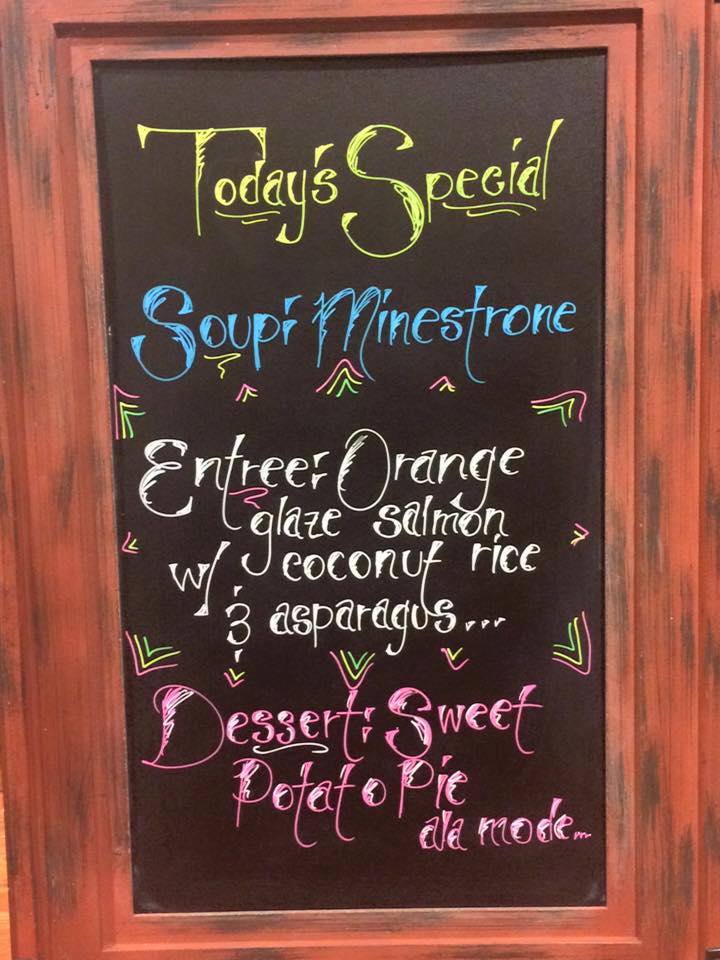 Today's Special
Soup: Minestrone
Entree: Orange
glaze salmon
w/ coconut rice
& asparagus...
Dessert: Sweet
Potato Pie
ala mode...